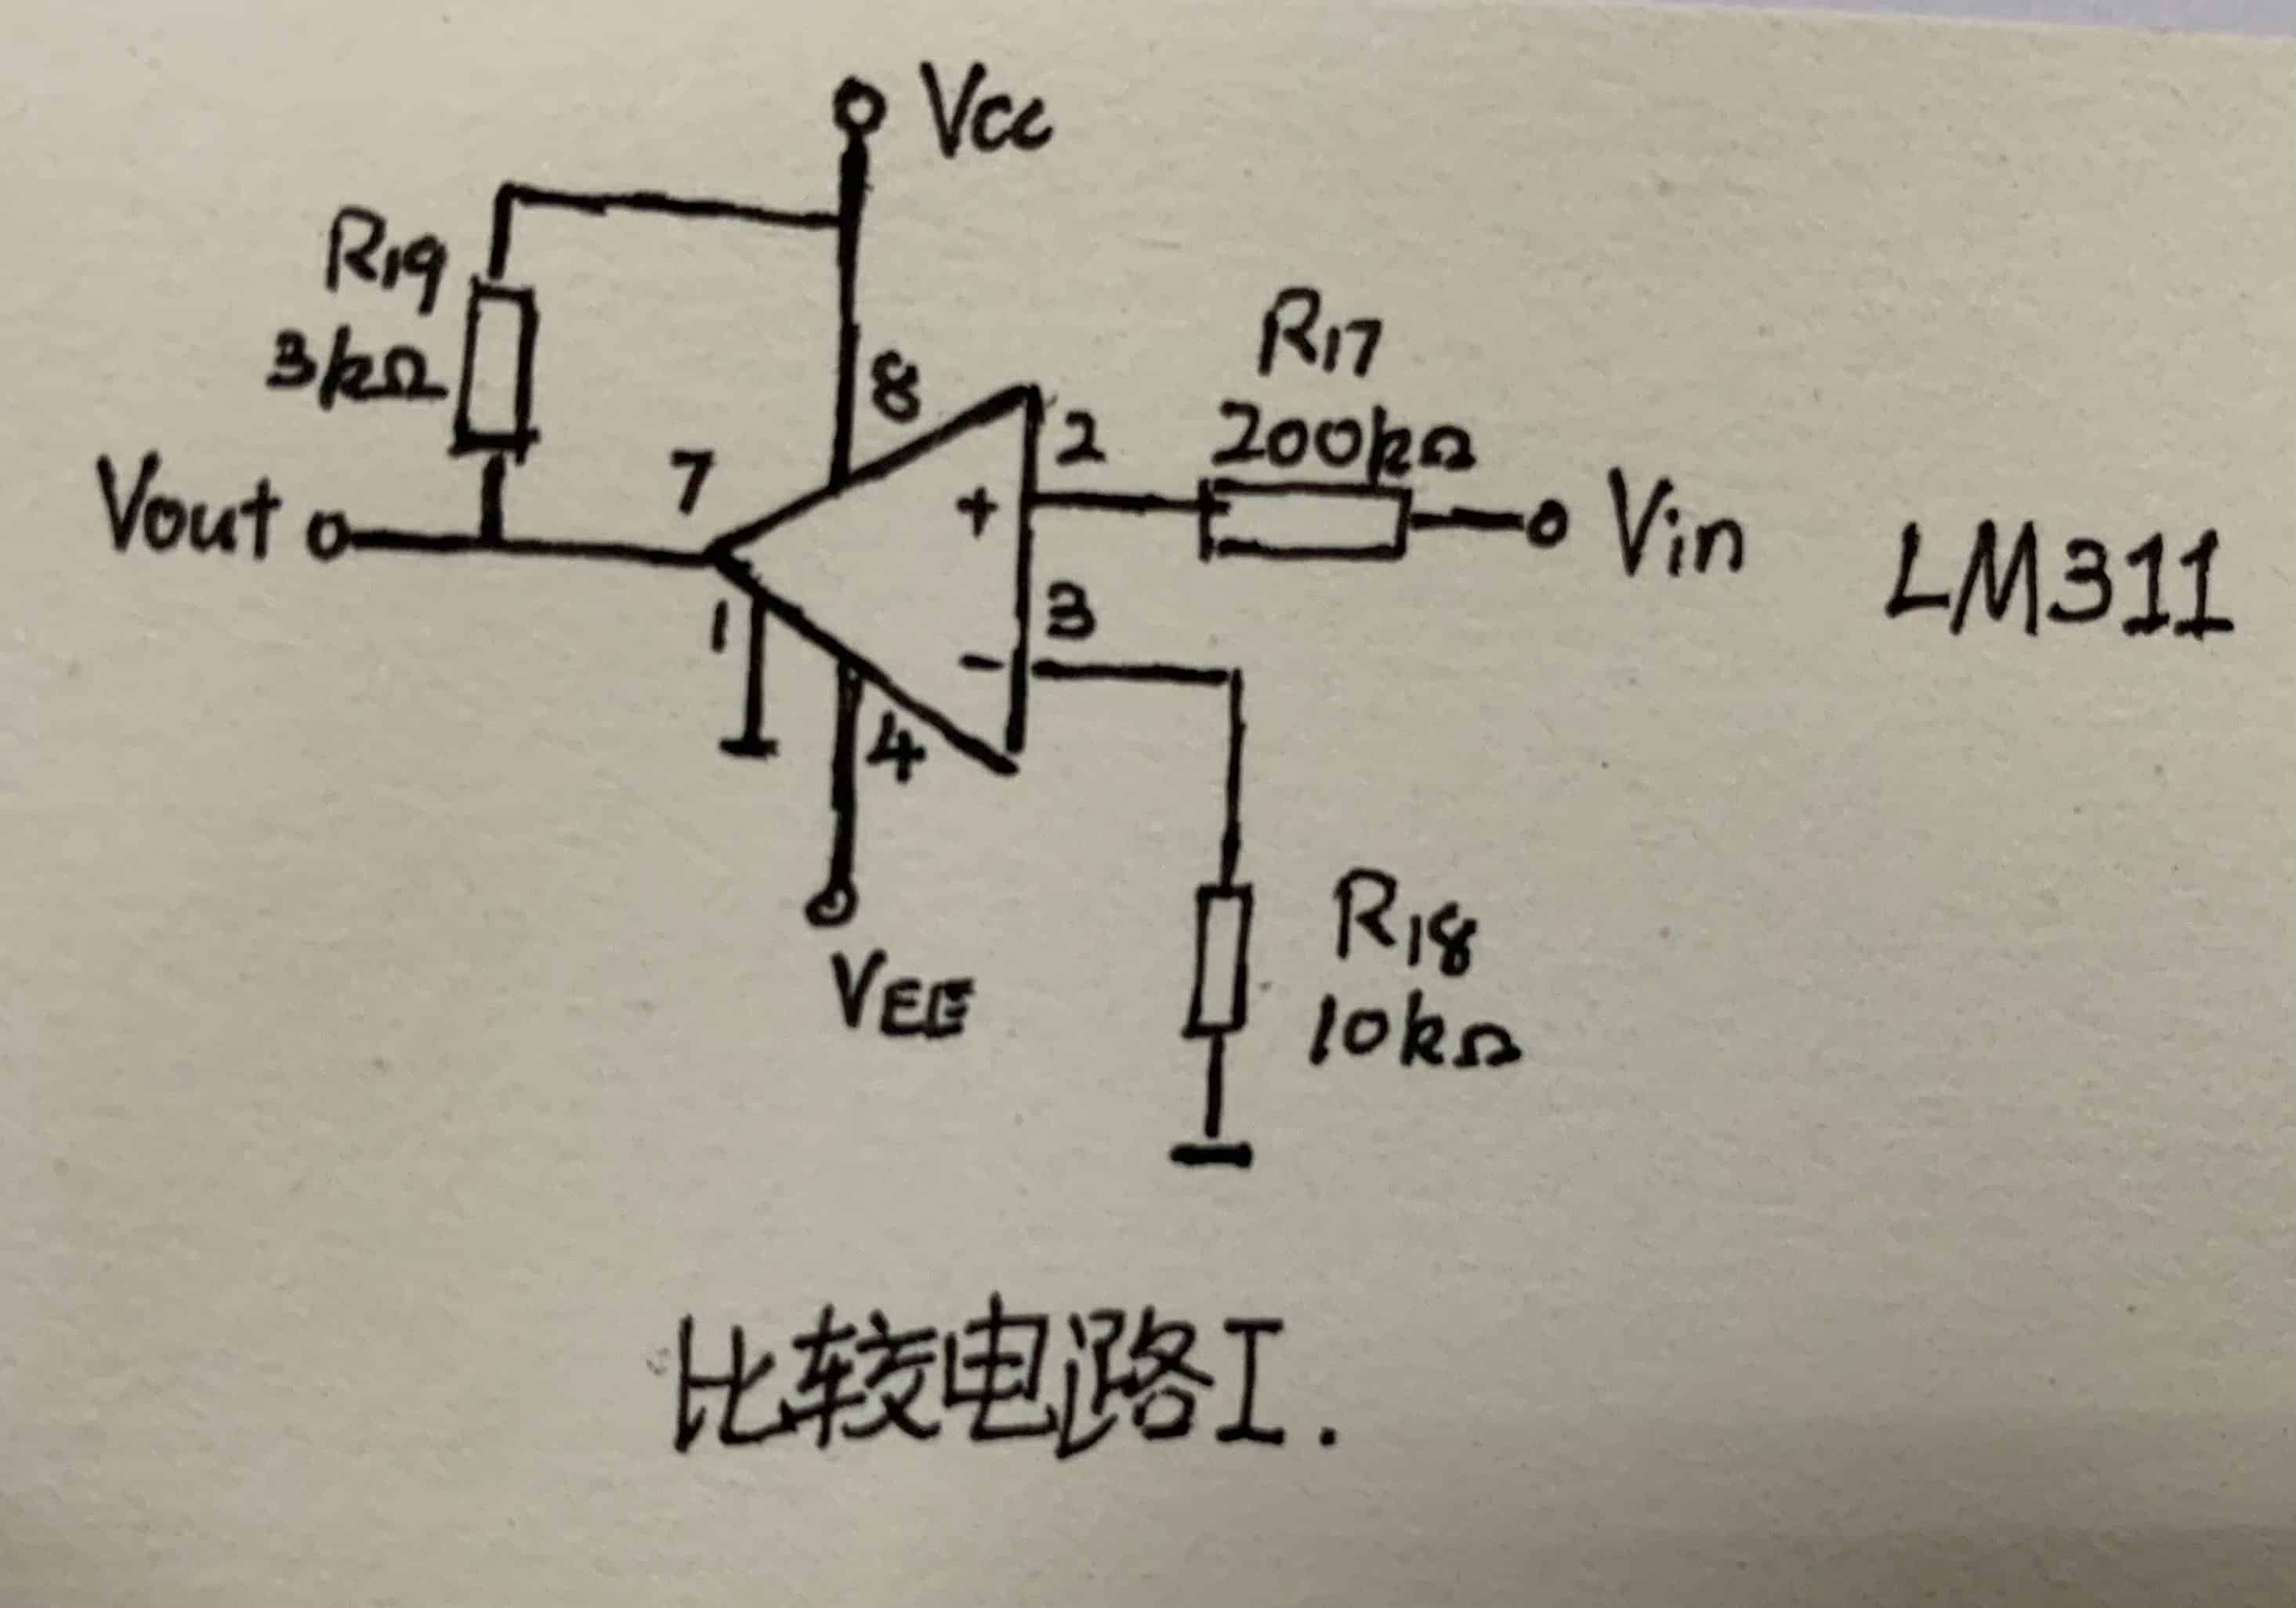 Vcc
R19
3kΩ
8
R17
200kΩ
2
+
7
Vout
Vin
LM311
1
3
-
4
VEE
R18
10kΩ
比较电路I.